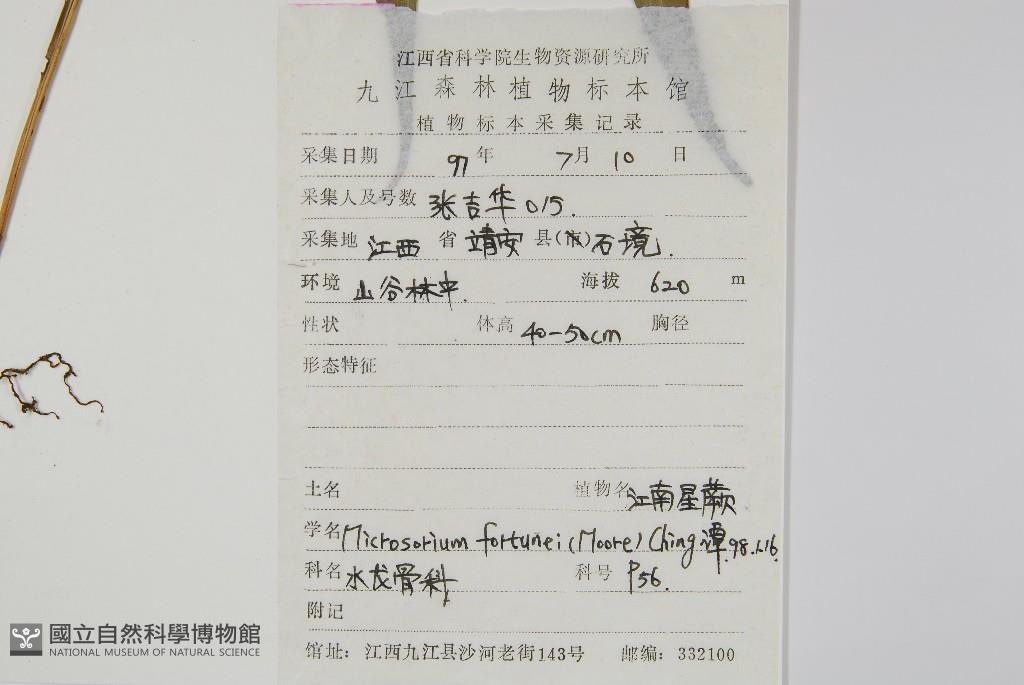 江西省科学院生物资源研究所
九江森林植物标本馆
植物标本采集记录
采集日期 97年 7月 10 日
采集人及号数 张吉华 015.
采集地 江西 省 靖安 县(市) 石境.
环境 山谷林中. 海拔 620 m
性状 体高 40-50cm 胸径
形态特征
土名 植物名 江南星蕨
学名 Microsorium fortunei (Moore) Ching 谭 98.1.16.
科名 水龙骨科 科号 P56.
附记
馆址: 江西九江县沙河老街143号 邮编: 332100
國立自然科學博物館
NATIONAL MUSEUM OF NATURAL SCIENCE